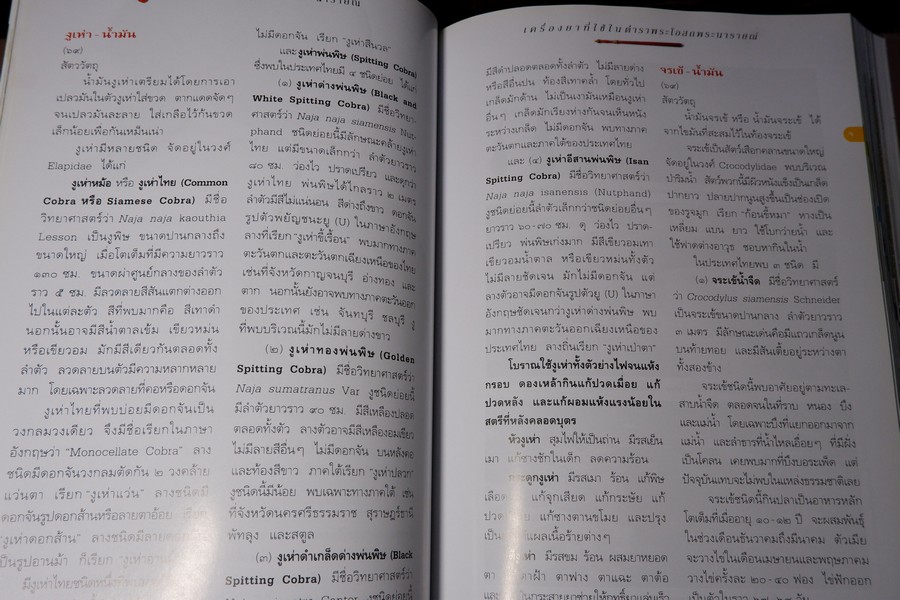 งูเห่า - น้ำมัน
(๖๙)
สัตววัตถุ
น้ำมันงูเห่าเตรียมได้โดยการเอา
เปลวมันในตัวงูเห่าใส่ขวด ตากแดดจัดๆ
จนเปลวมันละลาย ใส่เกลือไว้ก้นขวด
เล็กน้อยเพื่อกันเหม็นเน่า
งูเห่ามีหลายชนิด จัดอยู่ในวงศ์
Elapidae ได้แก่
งูเห่าหม้อ หรือ งูเห่าไทย (Common
Cobra หรือ Siamese Cobra) มีชื่อ
วิทยาศาสตร์ว่า Naja naja kaouthia
Lesson เป็นงูพิษ ขนาดปานกลางถึง
ขนาดใหญ่ เมื่อโตเต็มที่มีความยาวราว
๑๓๐ ซม. ขนาดผ่าศูนย์กลางของลำตัว
ราว ๕ ซม. มีลวดลายสีสันแตกต่างออก
ไปในแต่ละตัว สีที่พบมากคือ สีเทาดำ
นอกนั้นอาจมีสีน้ำตาลเข้ม เขียวหม่น
หรือเขียวอม มักมีสีเดียวกันตลอดทั้ง
ลำตัว ลวดลายบนตัวมีความหลากหลาย
มาก โดยเฉพาะลวดลายที่คอหรือดอกจัน
งูเห่าไทยที่พบบ่อยมีดอกจันเป็น
วงกลมวงเดียว จึงมีชื่อเรียกในภาษา
อังกฤษว่า "Monocellate Cobra" ลาง
ชนิดมีดอกจันวงกลมตัดกัน ๒ วงคล้าย
แว่นตา เรียก "งูเห่าแว่น" ลางชนิดมี
ดอกจันรูปดอกส้านหรือลายตาอ้อย เรียก
"งูเห่าดอกส้าน" ลางชนิดมีลายดอก
เป็นรูปอานม้า ก็เรียก "งูเห่าอานม้า"
มีงูเห่าไทยชนิดหนึ่งที่
ไม่มีดอกจัน เรียก "งูเห่าสีนวล"
และงูเห่าพ่นพิษ (Spitting Cobra)
ซึ่งพบในประเทศไทยมี ๔ ชนิดย่อย ได้แก่
(๑) งูเห่าด่างพ่นพิษ (Black and
White Spitting Cobra) มีชื่อวิทยา-
ศาสตร์ว่า Naja naja siamensis Nut-
phand ชนิดย่อยนี้มีลักษณะคล้ายงูเห่า
ไทย แต่มีขนาดเล็กกว่า ลำตัวยาวราว
๘๐ ซม. ว่องไว ปราดเปรียว และดุกว่า
งูเห่าไทย พ่นพิษได้ไกลราว ๒ เมตร
ลำตัวมีสีไม่แน่นอน สีด่างถึงขาว ดอกจัน
รูปตัวพยัญชนะยู (U) ในภาษาอังกฤษ
ลางที่เรียก "งูเห่าขี้เรื้อน" พบมากทางภาค
ตะวันตกและตะวันตกเฉียงเหนือของไทย
เช่นที่จังหวัดกาญจนบุรี อ่างทอง และ
ตาก นอกนั้นยังอาจพบทางภาคตะวันออก
ของประเทศ เช่น จันทบุรี ชลบุรี งู
ที่พบบริเวณนี้มักไม่มีลายด่างขาว
(๒) งูเห่าทองพ่นพิษ (Golden
Spitting Cobra) มีชื่อวิทยาศาสตร์ว่า
Naja sumatranus Var งูชนิดย่อยนี้
มีลำตัวยาวราว ๙๐ ซม. มีสีเหลืองปลอด
ตลอดทั้งตัว ลางตัวอาจมีสีเหลืองอมเขียว
ไม่มีลายสีอื่นๆ ไม่มีดอกจัน บนหลังคอ
และท้องสีขาว ภาคใต้เรียก "งูเห่าปลวก"
งูชนิดนี้มีน้อย พบเฉพาะทางภาคใต้ เช่น
ที่จังหวัดนครศรีธรรมราช สุราษฎร์ธานี
พัทลุง และสตูล
(๓) งูเห่าดำเกล็ดด่างพ่นพิษ (Black
Spitting Cobra) มีชื่อวิทยาศาสตร์ว่า
เครื่องยาที่ใช้ในตำราพระโอสถพระนารายณ์
มีสีดำปลอดตลอดทั้งลำตัว ไม่มีลายด่าง
หรือสีอื่นปน ท้องสีเทาคล้ำ โดยทั่วไป
เกล็ดมักด้าน ไม่เป็นเงามันเหมือนงูเห่า
อื่นๆ เกล็ดมักเรียงห่างกันจนเห็นหนัง
ระหว่างเกล็ด ไม่มีดอกจัน พบทางภาค
ตะวันตกและภาคใต้ของประเทศไทย
และ (๔) งูเห่าอีสานพ่นพิษ (Isan
Spitting Cobra) มีชื่อวิทยาศาสตร์ว่า
Naja naja isanensis (Nutphand)
งูชนิดย่อยนี้ลำตัวเล็กกว่าชนิดย่อยอื่นๆ
ยาวราว ๖๐-๗๐ ซม. ดุ ว่องไว ปราด-
เปรียว พ่นพิษเก่งมาก มีสีเขียวอมเทา
เขียวอมน้ำตาล หรือเขียวหม่นทั้งตัว
ไม่มีลายชัดเจน มักไม่มีดอกจัน แต่
ลางตัวอาจมีดอกจันรูปตัวยู (U) ในภาษา
อังกฤษชัดเจนกว่างูเห่าด่างพ่นพิษ พบ
มากทางภาคตะวันออกเฉียงเหนือของ
ประเทศไทย ลางถิ่นเรียก "งูเห่าเป่าตา"
โบราณใช้งูเห่าทั้งตัวย่างไฟจนแห้ง
กรอบ ดองเหล้ากินแก้ปวดเมื่อย แก้
ปวดหลัง และแก้ผอมแห้งแรงน้อยใน
สตรีที่หลังคลอดบุตร
หัวงูเห่า สุมไฟให้เป็นถ่าน มีรสเย็น
เมา แก้ซางชักในเด็ก ลดความร้อน
กระดูกงูเห่า มีรสเมา ร้อน แก้พิษ
เลือด แก้จุกเสียด แก้กระษัย แก้
ปวดเมื่อย แก้ซางตานขโมย และปรุง
เป็นยา แผลเนื้อร้ายต่างๆ
มีรสขม ร้อน ผสมยาหยอด
ตา ตาฝ้า ตาฟาง ตาแฉะ ตาต้อ
จรเข้ - น้ำมัน
(๖๙)
สัตววัตถุ
น้ำมันจรเข้ หรือ น้ำมันจระเข้ ได้
จากไขมันที่สะสมไว้ในท้องจระเข้
จระเข้เป็นสัตว์เลือกคลานขนาดใหญ่
จัดอยู่ในวงศ์ Crocodylidae พบบริเวณ
ป่าริมน้ำ สัตว์พวกนี้มีผิวหนังแข็งเป็นเกล็ด
ปากยาว ปลายปากนูนสูงขึ้นเป็นช่องเปิด
ของรูจมูก เรียก "ก้อนขี้หมา" หางเป็น
เหลี่ยม แบน ยาว ใช้โบกว่ายน้ำ และ
ใช้ฟาดต่างอาวุธ ชอบหากินในน้ำ
ในประเทศไทยพบ ๓ ชนิด มี
(๑) จระเข้น้ำจืด มีชื่อวิทยาศาสตร์
ว่า Crocodylus siamensis Schneider
เป็นจระเข้ขนาดปานกลาง ลำตัวยาวราว
๓ เมตร มีลักษณะเด่นคือมีแถวเกล็ดนูน
บนท้ายทอย และมีสันเตี้ยอยู่ระหว่างตา
ทั้งสองข้าง
จระเข้ชนิดนี้พบอาศัยอยู่ตามทะเล-
สาบน้ำจืด ตลอดจนในที่ราบ หนอง บึง
และแม่น้ำ โดยเฉพาะบึงที่แยกออกมาจาก
แม่น้ำ และลำธารที่น้ำไหลเอื่อยๆ ที่มีฝั่ง
เป็นโคลน เคยพบมากที่บึงบอระเพ็ด แต่
ปัจจุบันแทบจะไม่พบในแหล่งธรรมชาติเลย
จระเข้ชนิดนี้กินปลาเป็นอาหารหลัก
โตเต็มที่เมื่ออายุ ๑๐-๑๒ ปี จะผสมพันธุ์
ในช่วงเดือนธันวาคมถึงมีนาคม ตัวเมีย
จะวางไข่ในเดือนเมษายนและพฤษภาคม
วางไข่ครั้งละ ๒๐-๔๐ ฟอง ไข่ฟักออก